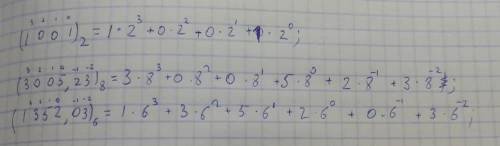 (1³0²0¹1⁰)₂ = 1·2³ + 0·2² + 0·2¹ + 1·2⁰;
(3³0²0¹5⁰,2⁻¹3⁻²)₈ = 3·8³ + 0·8² + 0·8¹ + 5·8⁰ + 2·8⁻¹ + 3·8⁻²;
(1³3²5¹2⁰,0⁻¹3⁻²)₆ = 1·6³ + 3·6² + 5·6¹ + 2·6⁰ + 0·6⁻¹ + 3·6⁻²;